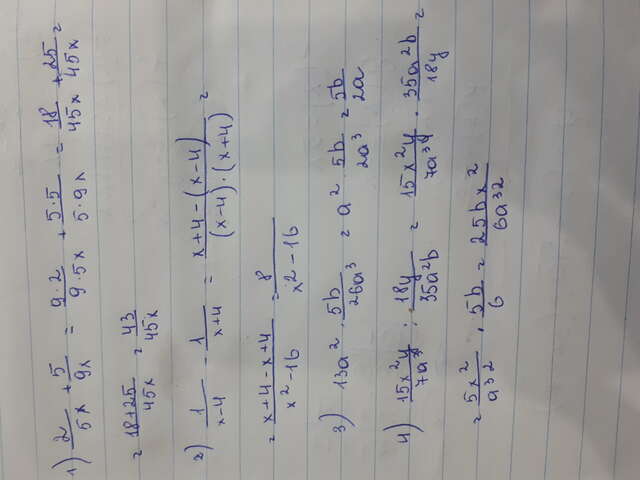 1) 2/5x + 5/9x = 9·2/9·5x + 5·5/5·9x = 18/45x + 25/45x =
= 18+25/45x = 43/45x
2) 1/x-4 - 1/x+4 = x+4-(x-4)/(x-4)·(x+4) =
= x+4-x+4/x²-16 = 8/x²-16
3) 13a² · 5b/26a³ = a² 5b/2a³ = 5b/2a
4) 15x²y/7a³⁴ : 18y/35a²b = 15x²y/7a³⁴ · 35a²b/18y =
= 5x²/a³² · 5b/6 = 25bx²/6a³²